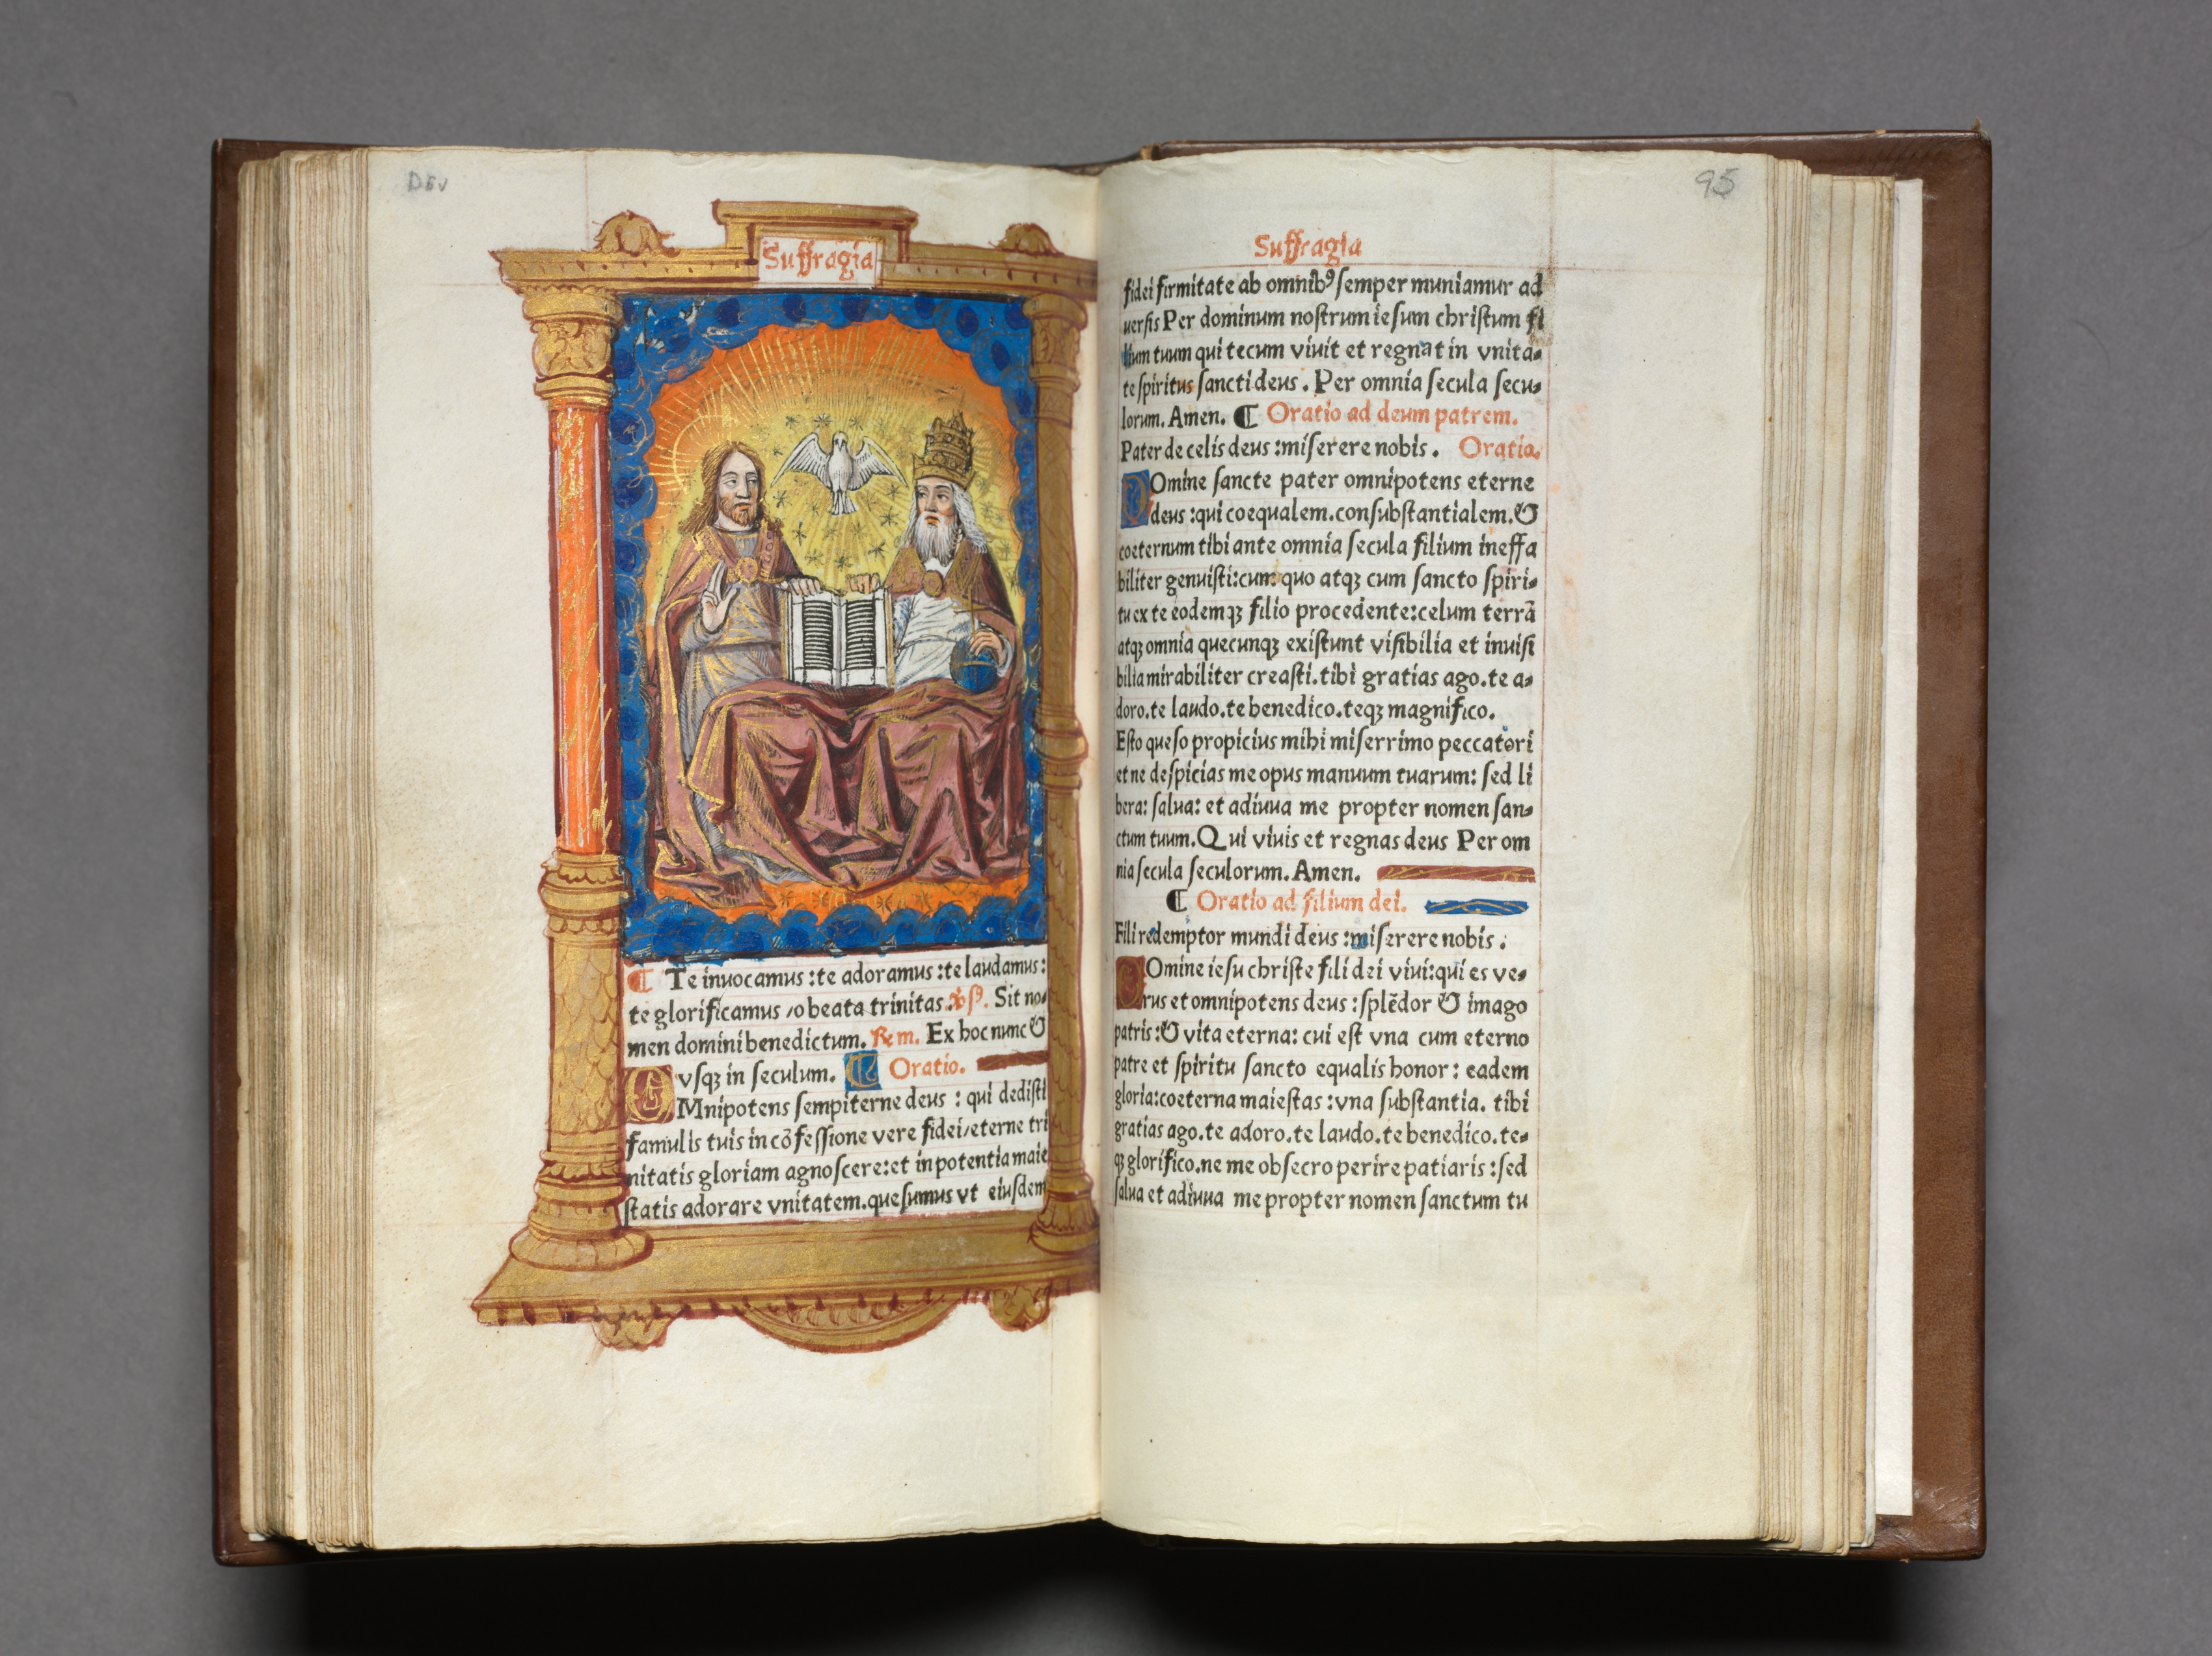 DEV
Suffragia
¶ Te inuocamus :te adoramus :te laudamus:
te glorificamus /o beata trinitas. Sit no⸗
men domini benedictum. ℞ m. Ex hoc nunc &
vſqꝫ in ſeculum. ¶ Oratio.
OMnipotens ſempiterne deus : qui dediſti
famulis tuis in cõfeſſione vere fidei/eterne tri
nitatis gloriam agnoſcere:et in potentia maie
ſtatis adorare vnitatem.queſumus vt eiuſdem
95
Suffragia
fidei firmitate ab omnibꝰ ſemper muniamur ad
uerſis Per dominum noſtrum ieſum chriſtum fi
lium tuum qui tecum viuit et regnat in vnita⸗
te ſpiritus ſancti deus . Per omnia ſecula ſecu⸗
lorum. Amen. ¶ Oratio ad deum patrem.
Pater de celis deus :miſerere nobis . Oratio.
DOmine ſancte pater omnipotens eterne
deus :qui coequalem.conſubſtantialem.&
coeternum tibi ante omnia ſecula filium ineffa
biliter genuiſti:cum quo atqꝫ cum ſancto ſpiri⸗
tu ex te eodemqꝫ filio procedente:celum terrã
atqꝫ omnia quecunqꝫ exiſtunt viſibilia et inuiſi
bilia mirabiliter creaſti.tibi gratias ago.te a⸗
doro.te laudo.te benedico.teqꝫ magnifico.
Eſto queſo propicius mihi miſerrimo peccatori
et ne deſpicias me opus manuum tuarum: ſed li
bera: ſalua: et adiuua me propter nomen ſan⸗
ctum tuum. Qui viuis et regnas deus Per om
nia ſecula ſeculorum. Amen.
¶ Oratio ad filium dei.
Fili redemptor mundi deus :miſerere nobis .
DOmine ieſu chriſte fili dei viui:qui es ve⸗
rus et omnipotens deus : ſplẽdor & imago
patris:& vita eterna: cui eſt vna cum eterno
patre et ſpiritu ſancto equalis honor : eadem
gloria:coeterna maieſtas :vna ſubſtantia. tibi
gratias ago.te adoro.te laudo.te benedico.te⸗
qꝫ glorifico.ne me obſecro perire patiaris :ſed
ſalua et adiuua me propter nomen ſanctum tu